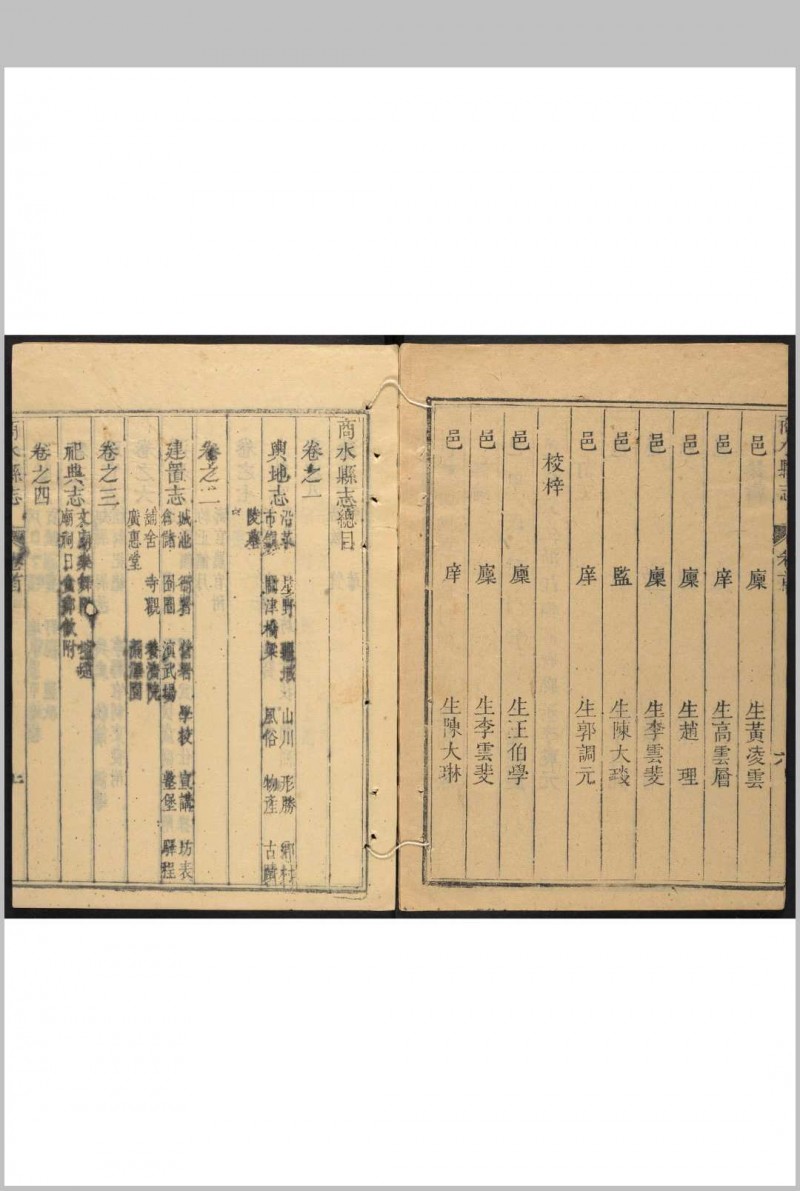 商水縣志 卷首 六
邑廩生黃凌雲
邑庠生高雲層
邑廩生趙理
邑廩生李雲斐
邑監生陳大琰
邑庠生郭調元
校梓
邑廩生王伯學
邑廩生李雲斐
邑庠生陳大琳
商水縣志總目
卷之一
輿地志
沿革 星野 疆域 山川 形勝 鄉村
市集 關津橋梁 風俗 物產 古蹟
陵墓
卷之二
建置志
城池 衙署 營署 學校 宣講 坊表
倉儲 囹圄 演武場 墩堡 驛程
鋪舍 寺觀 養濟院
廣惠堂 漏澤園
卷之三
祀典志
文廟樂舞附 壇壝
廟祠日食鄉飲附
卷之四
商水縣志 卷首